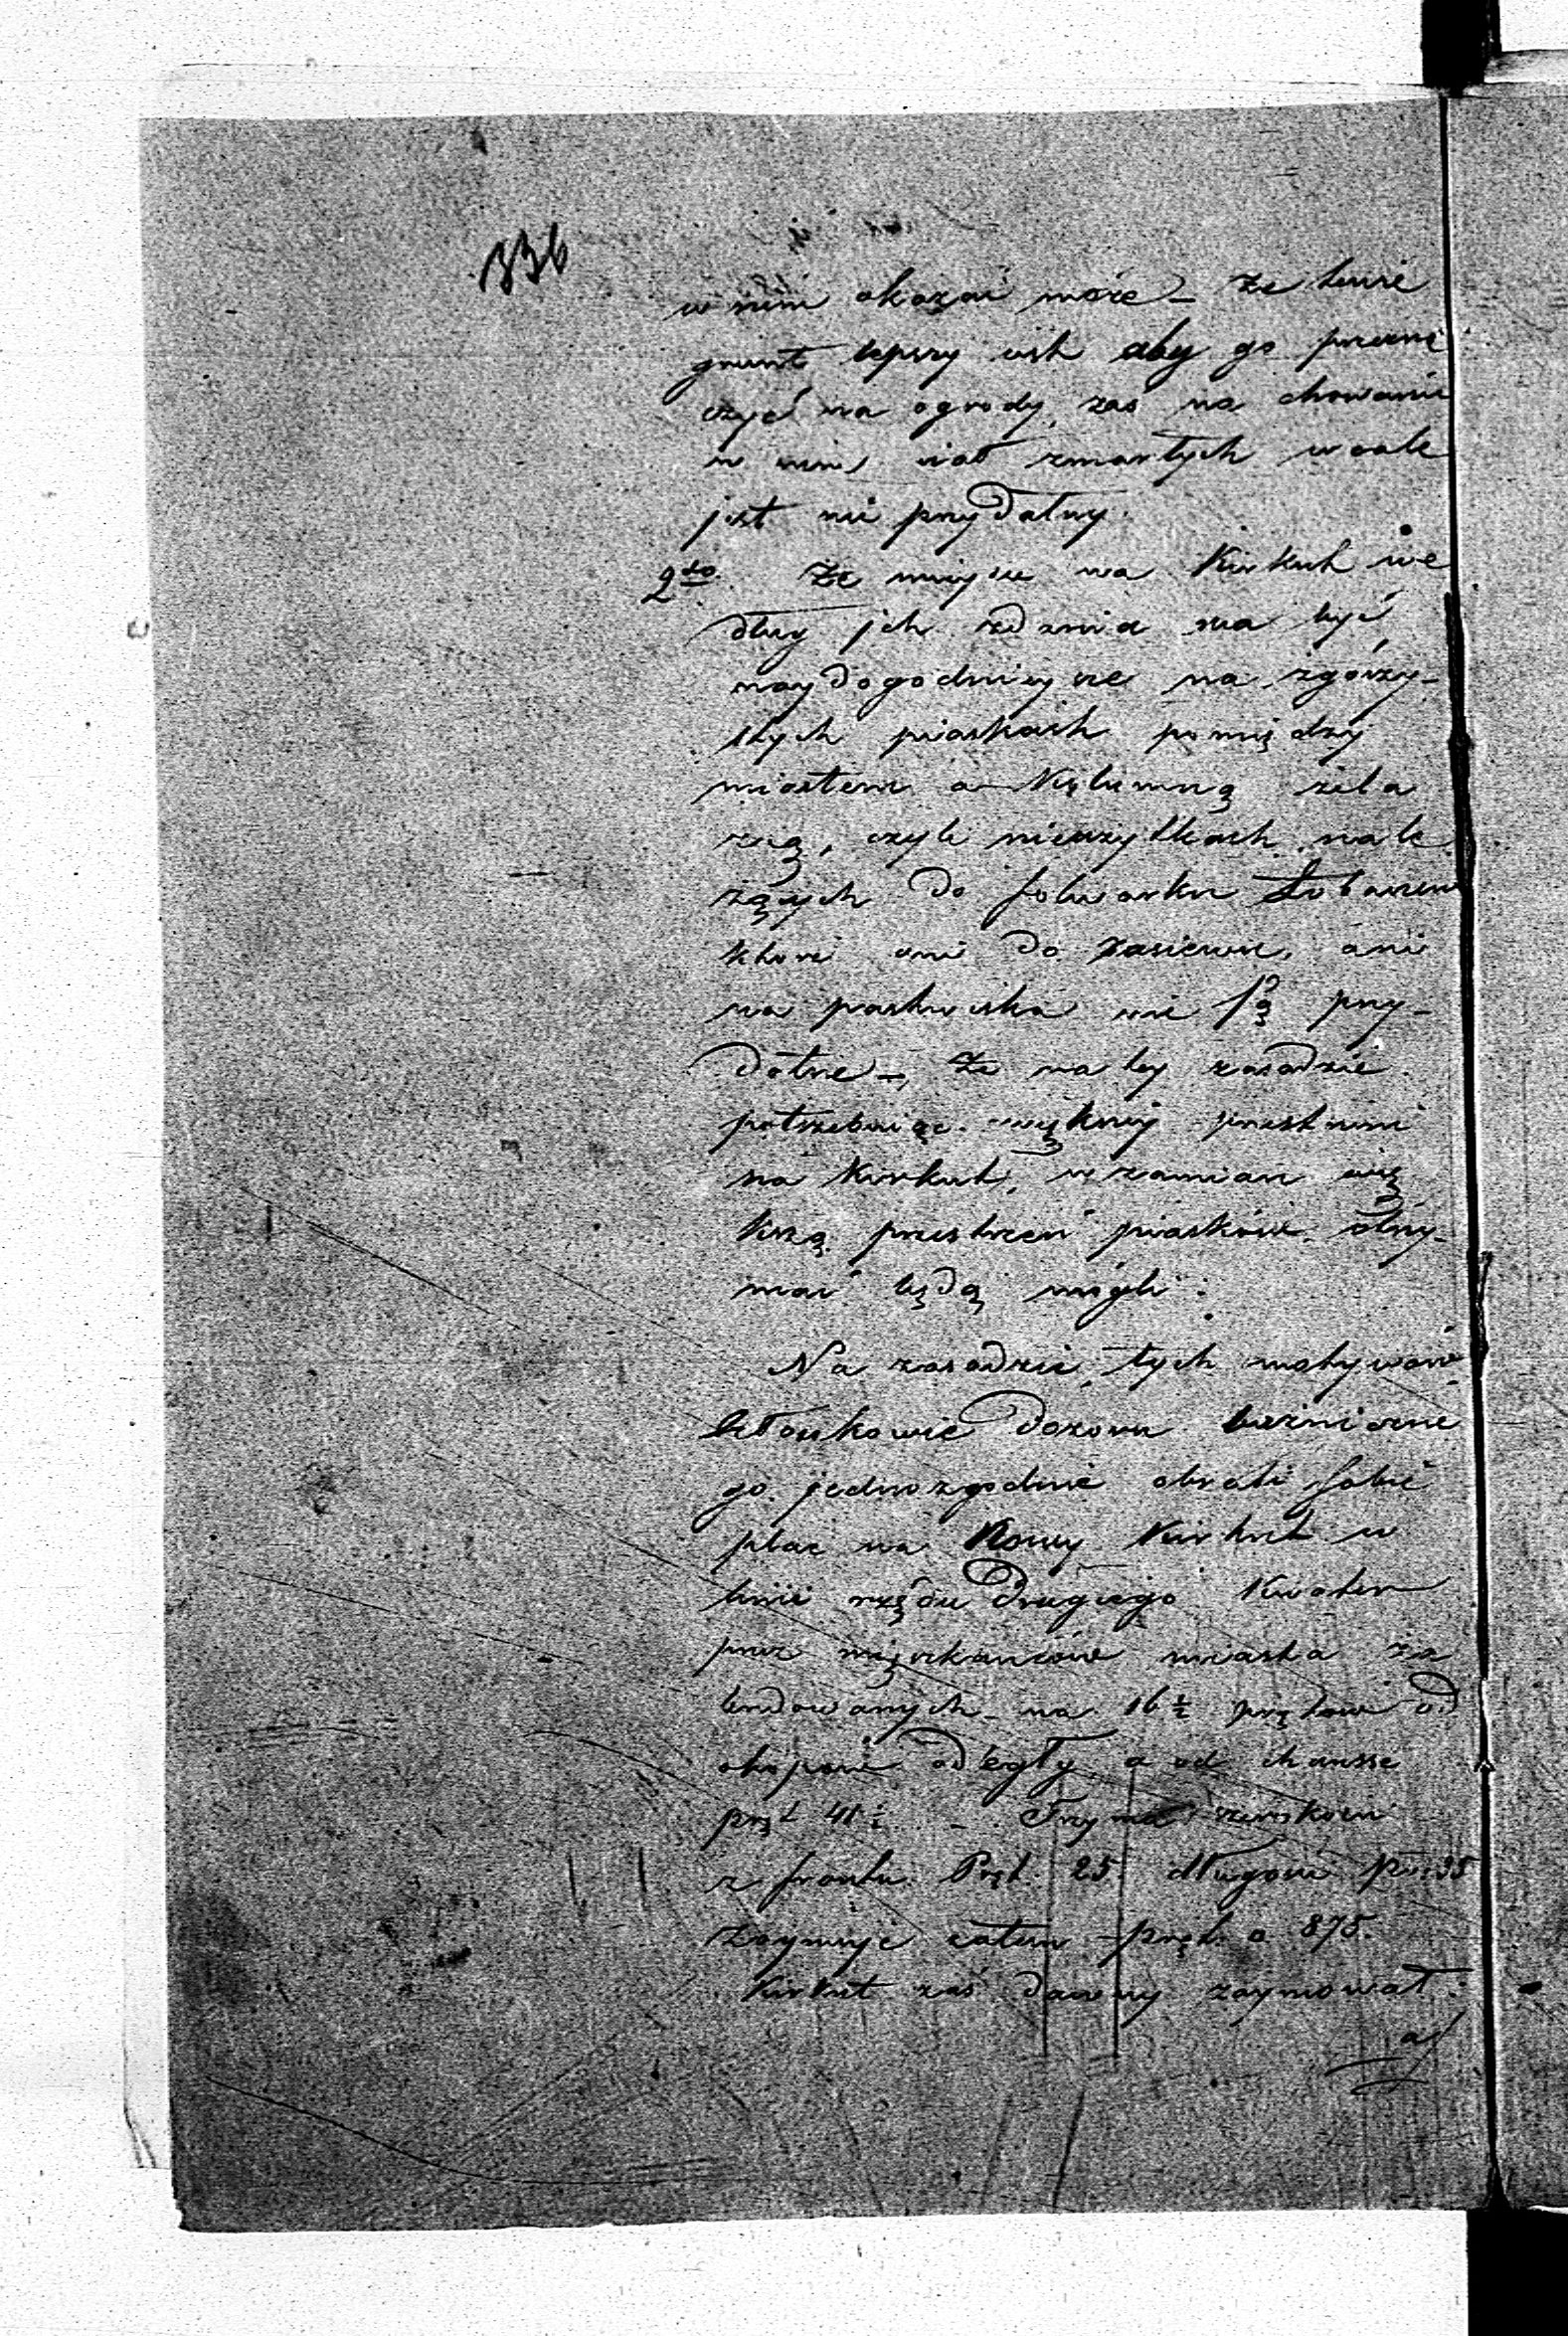 336
w nim okazać może – Że teraz
grunt lepszy jest aby go przezna
czyć na ogrody, zaś na chowanie
w nim ciał zmarłych wcale
jest nie przydatny.
2do. Że miejsce na Kirkut we
dług ich zdania ma być
naydogodnieysze na zgórzy-
stych piaskach pomiędzy
miastem a Kolumną żela
zną, czyli nieużytkach nale
żących do folwarku
które ani do zasiewu, ani
na pastwiska nie są przy-
datne –, Że na tey zasadzie
potrzebuiąc większej przestrzeni
na Kirkut, w zamian wię
kszą przestrzeń piasków otrzy-
mać będą mogli.
Na zasadzie tych motywów
Członkowie dozoru bużniczne
go jednozgodnie obrali sobie
plac na Nowy Kirkut w
linii rzędu drugiego Kwater
przez mięszkańców miasta za
budowanych – na 16½ prętów od
okopów odległy a od chausse
pręt 41½ – Trzyma szerokości
z frontu Pręt. 25 długości Pr: 35
Zaymuje zatem pręt. □ 875.
Kirkut zaś dawny zaymował:
a/